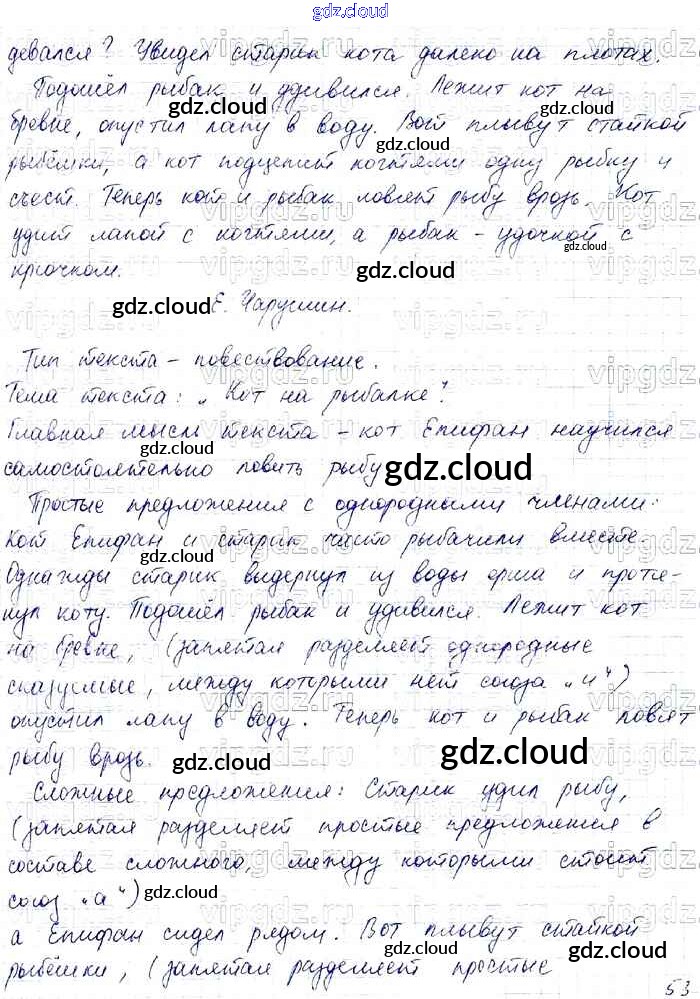 gdz.cloud
девался? Увидел старик кота далеко на плотах.
Подошёл рыбак и удивился. Лежит кот на
бревне, опустил лапу в воду. Вот плывут стайкой
рыбёшки, а кот подцепит когтями одну рыбку и
съест. Теперь кот и рыбак ловят рыбу врозь. Кот
удит лапой с когтями, а рыбак – удочкой с
крючком.
Е. Чарушин.
Тип текста – повествование.
Тема текста: „Кот на рыбалке".
Главная мысль текста – кот Епифан научился
самостоятельно ловить рыбу
Простые предложения с однородными членами:
Кот Епифан и старик часто рыбачили вместе.
Однажды старик выдернул из воды ерша и протя-
нул коту. Подошёл рыбак и удивился. Лежит кот
на бревне, (запятая разделяет однородные
сказуемые, между которыми нет союза „и")
опустил лапу в воду. Теперь кот и рыбак ловят
рыбу врозь.
Сложные предложения: Старик удил рыбу,
(запятая разделяет простые предложения в
составе сложного, между которыми стоит
союз „а")
а Епифан сидел рядом. Вот плывут стайкой
рыбёшки, (запятая разделяет простые
53